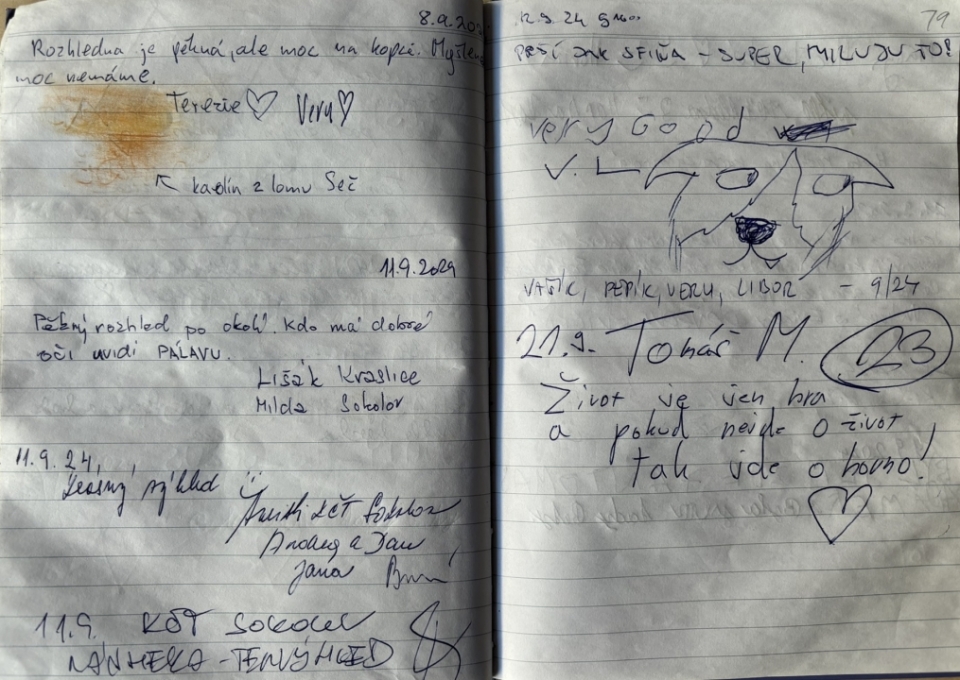 8.9.20
Rozhledna je pěkná, ale moc na kopci. Myšlene
moc nemáme.
Terezie Veru
kaolin z lomu Seč
11.9.2024
Pěkný rozhled po okolí. Kdo má dobré
oči uvidí PÁLAVU.
Lišák Kraslice
Milda Sokolov
11.9.24,
krásný výhled
KČT Sokolov
a
Jana
11.9. KČT SOKOLOV
12.9.24 9
79
PRŠÍ JAK SFIŇA - SUPER, MILUJU TO!
very Good
V. L
VAŠÍK, PEPÍK, VERU, LIBOR - 9/24
21.9. Tomáš M. 23
Život je jen hra
a pokud nejde o život,
tak jde o hovno!